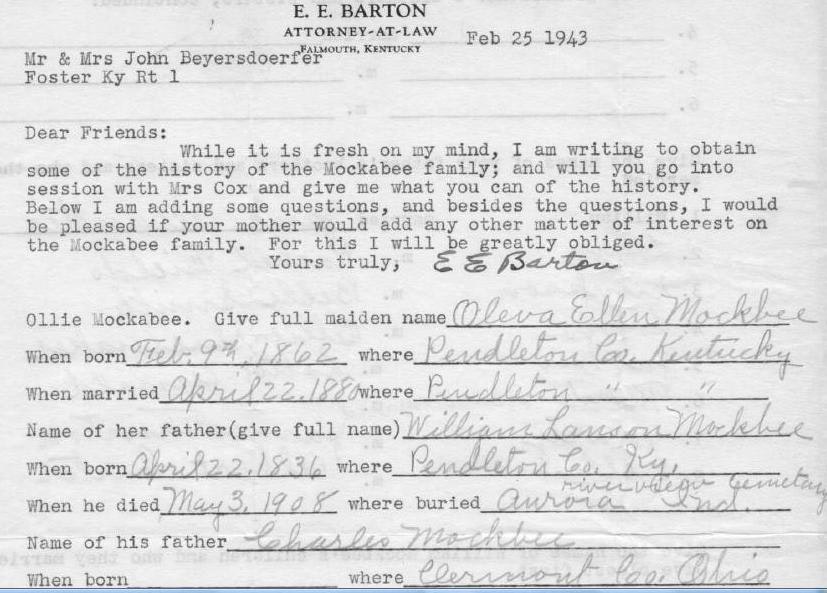 E. E. BARTON
ATTORNEY-AT-LAW
FALMOUTH, KENTUCKY
Feb 25 1943
Mr & Mrs John Beyersdoerfer
Foster Ky Rt 1
Dear Friends:
While it is fresh on my mind, I am writing to obtain
some of the history of the Mockabee family; and will you go into
session with Mrs Cox and give me what you can of the history.
Below I am adding some questions, and besides the questions, I would
be pleased if your mother would add any other matter of interest on
the Mockabee family. For this I will be greatly obliged.
Yours truly, E E Barton
Ollie Mockabee. Give full maiden name Oleva Ellen Mockbee
When born Feb. 9th, 1862 where Pendleton Co. Kentucky
When married April 22, 1880 where Pendleton " "
Name of her father(give full name) William Lanson Mockbee
When born April 22, 1836 where Pendleton Co. Ky.
When he died May 3, 1908 where buried Aurora Ind. river view Cemetary
Name of his father Charles Mockbee
When born where Clermont Co. Ohio